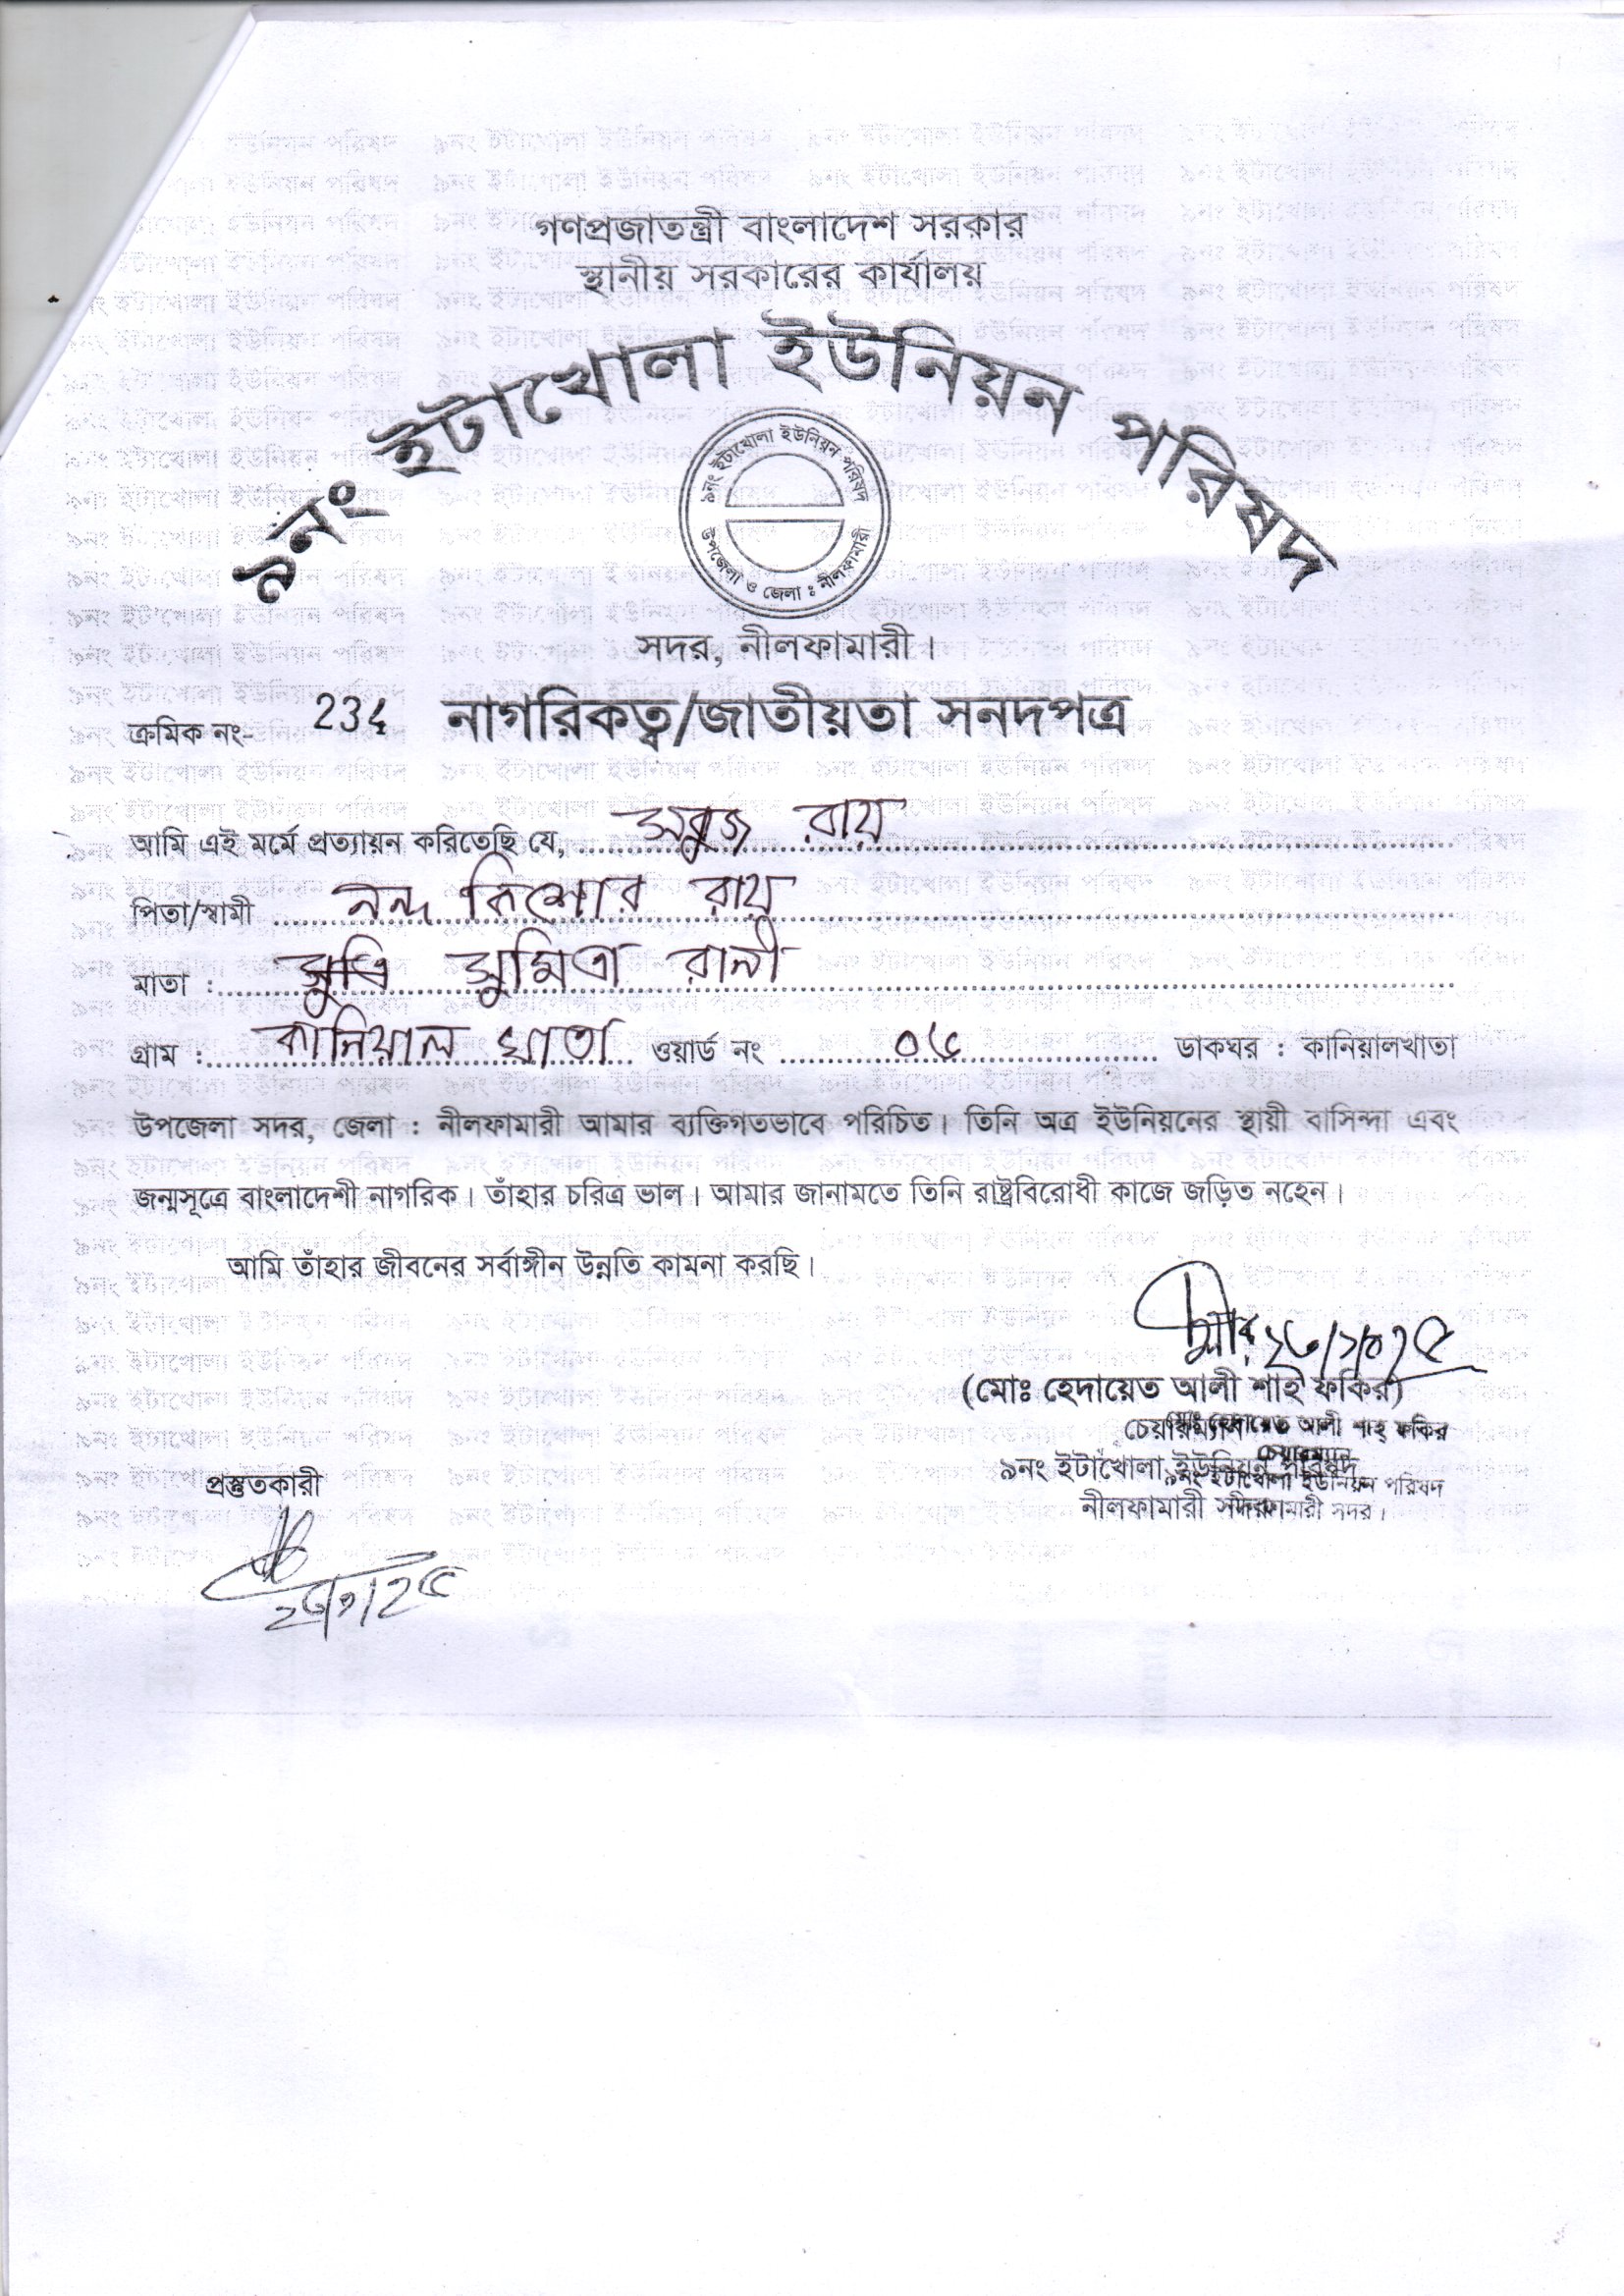 গণপ্রজাতন্ত্রী বাংলাদেশ সরকার
স্থানীয় সরকারের কার্যালয়
৯নং ইটাখোলা ইউনিয়ন পরিষদ
৯নং ইটাখোলা ইউনিয়ন পরিষদ
উপজেলা ও জেলা : নীলফামারী
সদর, নীলফামারী।
ক্রমিক নং- নাগরিকত্ব/জাতীয়তা সনদপত্র
আমি এই মর্মে প্রত্যায়ন করিতেছি যে, সবুজ রায়
পিতা/স্বামী নন্দ কিশোর রায়
মাতা : সুমিত্রা রানী
গ্রাম : কানিয়াল খাতা ওয়ার্ড নং ০৬ ডাকঘর : কানিয়ালখাতা
উপজেলা সদর, জেলা : নীলফামারী আমার ব্যক্তিগতভাবে পরিচিত। তিনি অত্র ইউনিয়নের স্থায়ী বাসিন্দা এবং
জন্মসূত্রে বাংলাদেশী নাগরিক। তাঁহার চরিত্র ভাল। আমার জানামতে তিনি রাষ্ট্রবিরোধী কাজে জড়িত নহেন।
আমি তাঁহার জীবনের সর্বাঙ্গীন উন্নতি কামনা করছি।
(মোঃ হেদায়েত আলী শাহ্ ফকির)
চেয়ারম্যান
৯নং ইটাখোলা ইউনিয়ন পরিষদ
নীলফামারী সদর।
মোঃ হেদায়েত আলী শাহ্ ফকির
চেয়ারম্যান
৯নং ইটাখোলা ইউনিয়ন পরিষদ
নীলফামারী সদর।
প্রস্তুতকারী